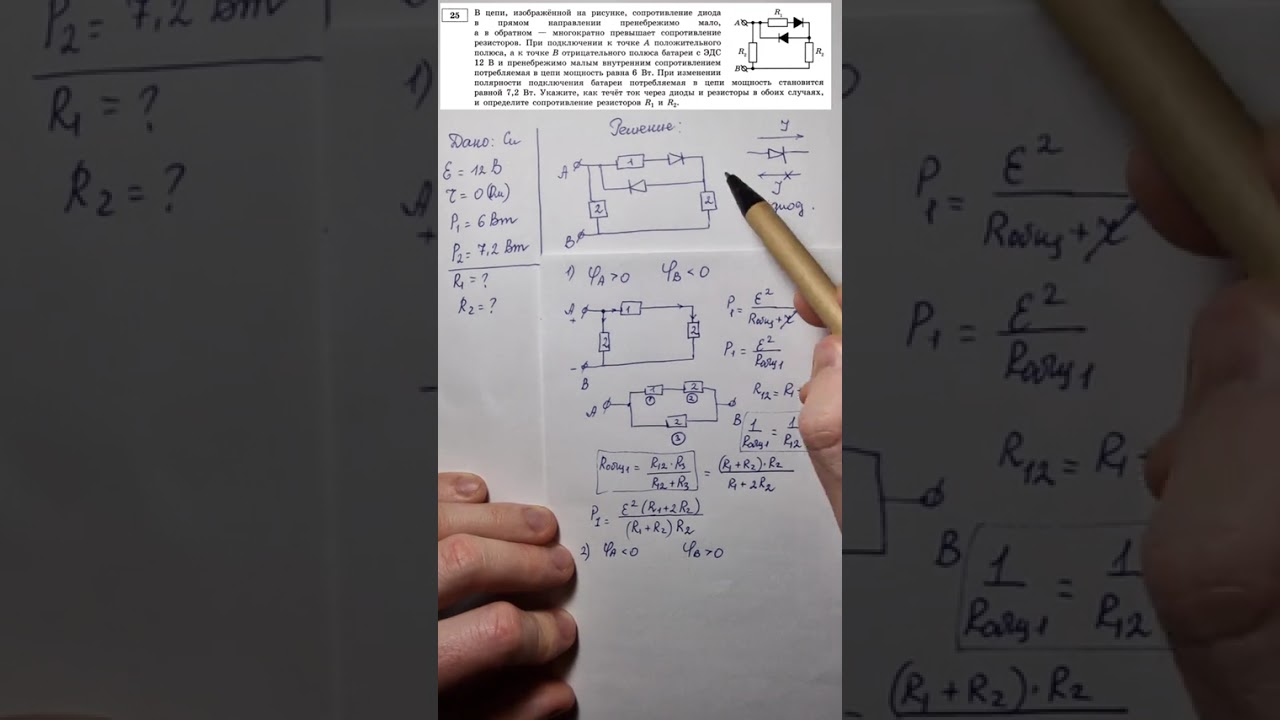 25
В цепи, изображённой на рисунке, сопротивление диода
в прямом направлении пренебрежимо мало,
а в обратном — многократно превышает сопротивление
резисторов. При подключении к точке A положительного
полюса, а к точке B отрицательного полюса батареи с ЭДС
12 В и пренебрежимо малым внутренним сопротивлением
потребляемая в цепи мощность равна 6 Вт. При изменении
полярности подключения батареи потребляемая в цепи мощность становится
равной 7,2 Вт. Укажите, как течёт ток через диоды и резисторы в обоих случаях,
и определите сопротивление резисторов R₁ и R₂.
A
R₁
R₂
R₂
B
Дано: Си
ℰ = 12 В
r = 0 (Ом)
P₁ = 6 Вт
P₂ = 7,2 Вт
R₁ = ?
R₂ = ?
Решение:
A
1
2
2
B
J
J
1) φA > 0 φB < 0
A
+
1
2
2
-
B
P₁ = ℰ² / Rобщ + r
P₁ = ℰ² / Rобщ1
R₁₂ = R₁
A
1
2
①
②
2
③
B
1/Rобщ1 = 1/R₁₂
Rобщ1 = R₁₂·R₃ / R₁₂+R₃ = (R₁+R₂)·R₂ / R₁+2R₂
P₁ = ℰ²(R₁+2R₂) / (R₁+R₂)R₂
2) φA < 0 φB > 0
P₂ = 7,2 Вт
R₁ = ?
R₂ = ?
P₁ = ℰ² / Rобщ + r
P₁ = ℰ² / Rобщ1
R₁₂ = R₁
B
1/Rобщ1 = 1/R₁₂
(R₁+R₂)·R₂